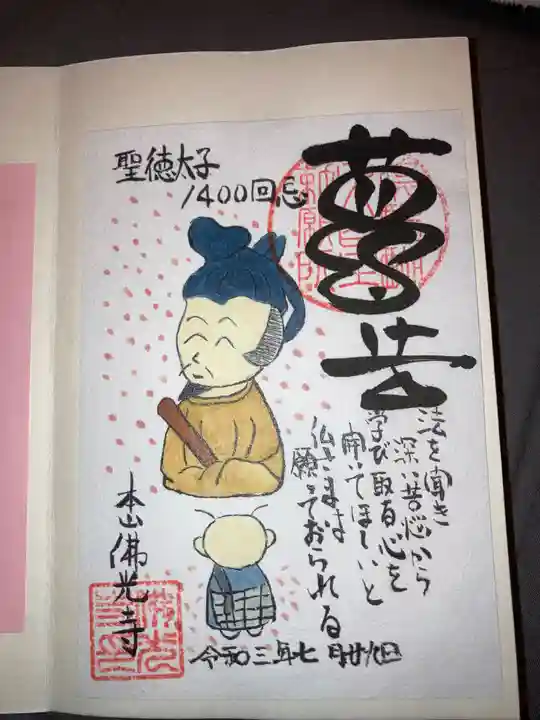 聖徳太子
1400回忌
法を聞き
深い苦悩から
学び取る心を
開いてほしいと
仏さまは
願っておられる
本山佛光寺
令和三年七月廿八日